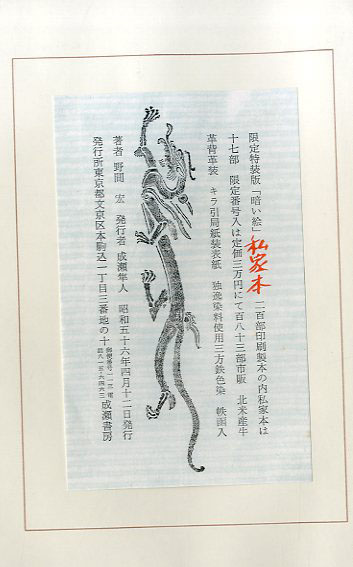 限定特装版「暗い絵」私家本 二百部印刷製本の内私家本は
十七部 限定番号入は定価三万円にて百八十三部市販 北米産牛
革背革装 キラ引局紙装表紙 独逸染料使用三方鉄色染 帙函入
著者 野間 宏 発行者 成瀬隼人 昭和五十六年四月十二日発行
発行所東京都文京区本駒込一丁目三番地の十 成瀬書房